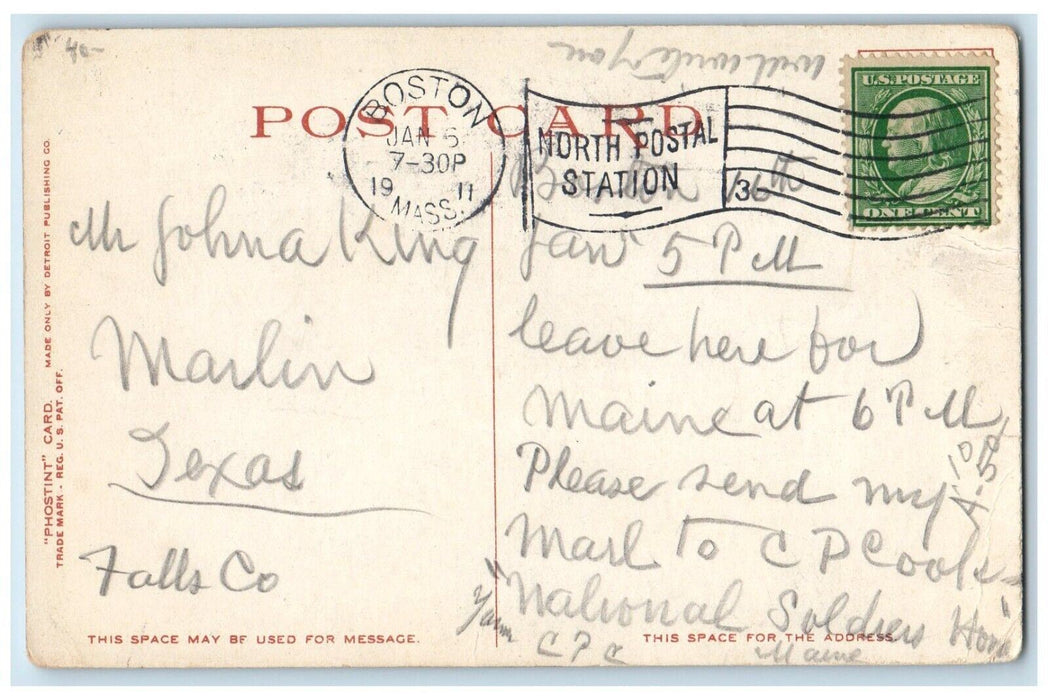 40-
will write you
U.S. POSTAGE
POST CARD
BOSTON
JAN 5
7-30P
19 11
MASS.
NORTH POSTAL
STATION
3
ONE CENT
Boston
Mr John a King
Marlin
Texas
Falls Co
Jan 5 P M
leave here for
Maine at 6 P M
Please send my
Mail to C P Cook
"National Soldiers Home"
Maine
C P C
"PHOSTINT" CARD. MADE ONLY BY DETROIT PUBLISHING CO.
TRADE MARK - REG. U. S. PAT. OFF.
THIS SPACE MAY BE USED FOR MESSAGE.
THIS SPACE FOR THE ADDRESS.